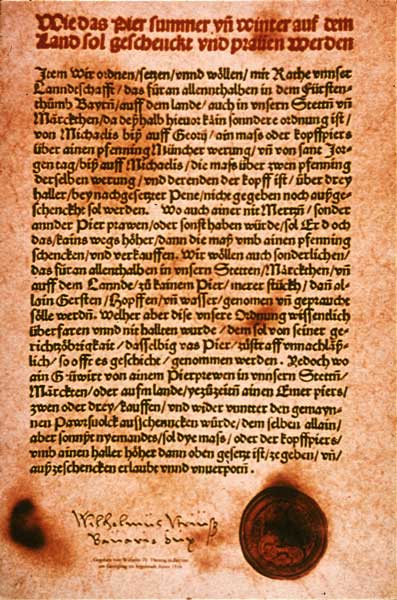 Wie das Pier summer vñ winter auf dem
Land sol geschenckt vnd prauen werden
Item Wir ordnen/setzen/vnnd wöllen/mit Rathe vnnser
Lanndeschafft/das füran allennthalben in dem Fürsten-
thūmb Bayrñ/auff dem lande/auch in vnsern Stettñ vñ
Märckthen/da deßhalb hieuor kain sonndere ordnung ist/
von Michaelis biß auff Georij/ain mass oder kopffpiers
über ainen pfenning Müncher werung/vñ von sant Jor-
gentag/biß auff Michaelis/die mass über zwen pfenning
derselben werung/vnd derenden der kopff ist/über drey
haller/bey nachgesetzter Pene/nicht gegeben noch außge-
schenckht sol werden. Wo auch ainer nit Mertzñ/sonder
annder Pier prawen/oder sonst haben würde/sol Er doch
das/kains wegs höher/dann die maß vmb ainen pfenning
schencken/vnd verkauffen. Wir wöllen auch sonderlichen/
das füran allenthalben in vnsern Stetten/Märckthen/vñ
auff dem Lannde/zū kainem Pier/merer stückh/dañ al-
lain Gersten/Hopffen/vñ wasser/genomen vñ geprauche
sölle werdñ. Welher aber dise vnsere Ordnung wissendlich
überfaren vnnd nit hallten wurde/dem sol von seiner ge-
richtzöbrigkait/dasselbig vas Pier/zūstraff vnnachläß-
lich/so offt es geschicht/genommen werden. Yedoch wo
ain Gūwirt von ainem Pierprewen in vnnsern Stettñ/
Märckten/oder aufm lande/yezūzeitñ ainen Emer piers/
zwen oder drey/kauffen/vnd wider vnnter den gemayn-
nen Pawrsuolck ausschencken würde/dem selben allain/
aber sonnst nyemandts/sol dye mass/oder der kopffpiers/
vmb ainen haller höher dann oben gesetzt ist/ze geben/vñ/
außzeschencken erlaubt vnnd vnuerpotñ.
Wilhelmus
Bavarie dux
Gegeben von Wilhelm IV. Herzog in Bayern
am Georgitag zu Ingolstadt Anno 1516